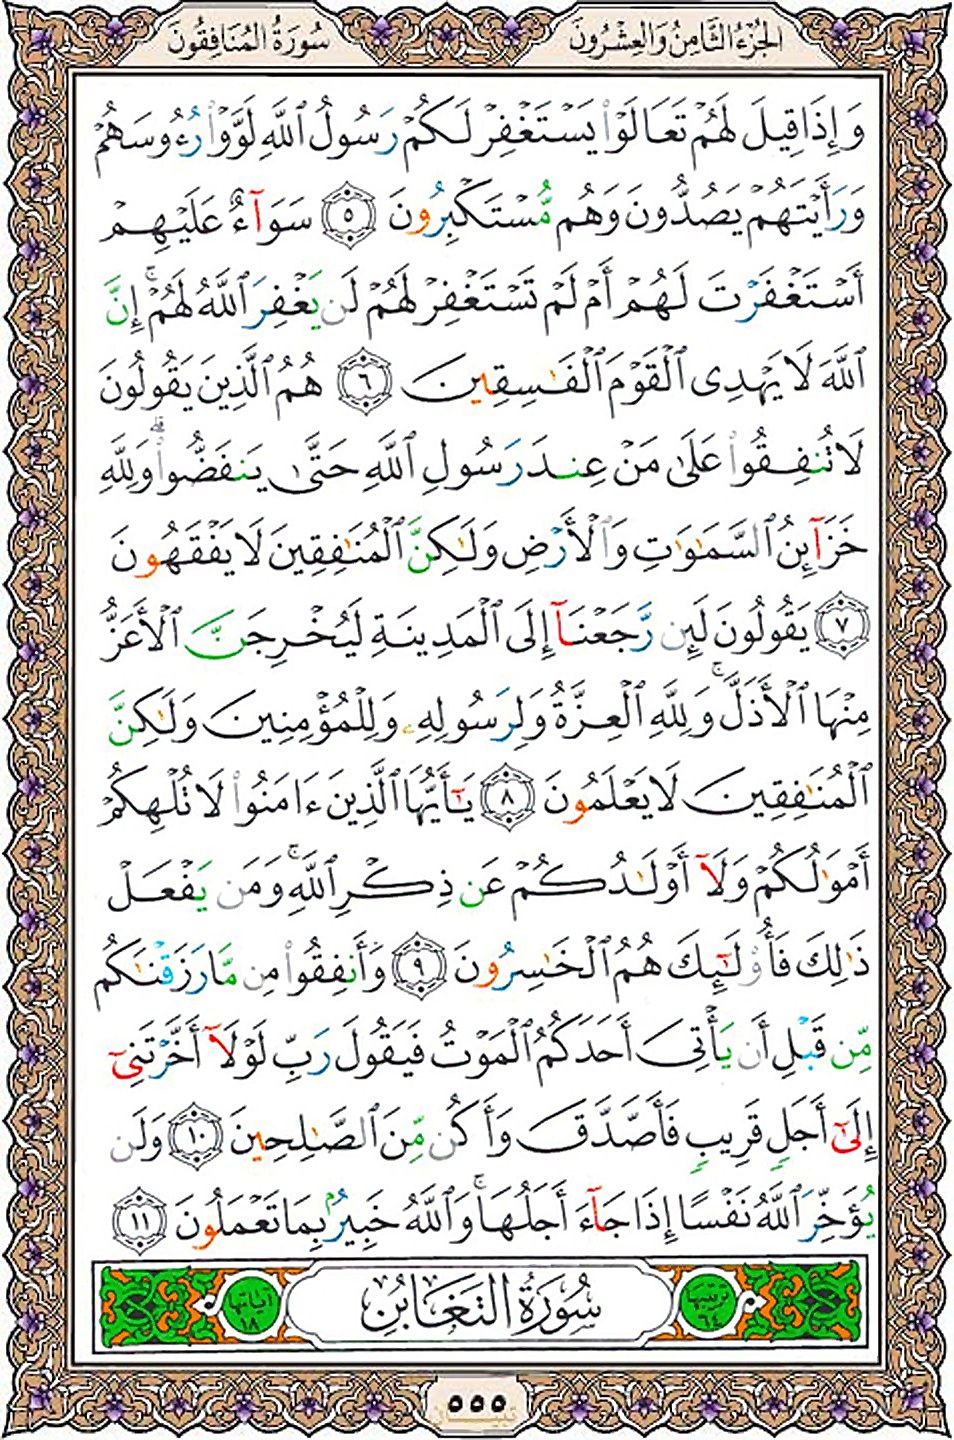 الجُزْءُ الثَّامِنُ وَالعِشْرُونَ
سُورَةُ المُنَافِقُونَ
وَإِذَا قِيلَ لَهُمْ تَعَالَوْا۟ يَسْتَغْفِرْ لَكُمْ رَسُولُ ٱللَّهِ لَوَّوْا۟ رُءُوسَهُمْ
وَرَأَيْتَهُمْ يَصُدُّونَ وَهُم مُّسْتَكْبِرُونَ ٥ سَوَآءٌ عَلَيْهِمْ
أَسْتَغْفَرْتَ لَهُمْ أَمْ لَمْ تَسْتَغْفِرْ لَهُمْ لَن يَغْفِرَ ٱللَّهُ لَهُمْ ۚ إِنَّ
ٱللَّهَ لَا يَهْدِى ٱلْقَوْمَ ٱلْفَـٰسِقِينَ ٦ هُمُ ٱلَّذِينَ يَقُولُونَ
لَا تُنفِقُوا۟ عَلَىٰ مَنْ عِندَ رَسُولِ ٱللَّهِ حَتَّىٰ يَنفَضُّوا۟ ۗ وَلِلَّهِ
خَزَآئِنُ ٱلسَّمَـٰوَٰتِ وَٱلْأَرْضِ وَلَـٰكِنَّ ٱلْمُنَـٰفِقِينَ لَا يَفْقَهُونَ
٧ يَقُولُونَ لَئِن رَّجَعْنَآ إِلَى ٱلْمَدِينَةِ لَيُخْرِجَنَّ ٱلْأَعَزُّ
مِنْهَا ٱلْأَذَلَّ ۚ وَلِلَّهِ ٱلْعِزَّةُ وَلِرَسُولِهِۦ وَلِلْمُؤْمِنِينَ وَلَـٰكِنَّ
ٱلْمُنَـٰفِقِينَ لَا يَعْلَمُونَ ٨ يَـٰٓأَيُّهَا ٱلَّذِينَ ءَامَنُوا۟ لَا تُلْهِكُمْ
أَمْوَٰلُكُمْ وَلَآ أَوْلَـٰدُكُمْ عَن ذِكْرِ ٱللَّهِ ۚ وَمَن يَفْعَلْ
ذَٰلِكَ فَأُو۟لَـٰٓئِكَ هُمُ ٱلْخَـٰسِرُونَ ٩ وَأَنفِقُوا۟ مِن مَّا رَزَقْنَـٰكُم
مِّن قَبْلِ أَن يَأْتِىَ أَحَدَكُمُ ٱلْمَوْتُ فَيَقُولَ رَبِّ لَوْلَآ أَخَّرْتَنِىٓ
إِلَىٰٓ أَجَلٍ قَرِيبٍ فَأَصَّدَّقَ وَأَكُن مِّنَ ٱلصَّـٰلِحِينَ ١٠ وَلَن
يُؤَخِّرَ ٱللَّهُ نَفْسًا إِذَا جَآءَ أَجَلُهَا ۚ وَٱللَّهُ خَبِيرٌۢ بِمَا تَعْمَلُونَ ١١
ترتيبها ٦٤
سُورَةُ التَّغَابُنِ
آياتها ١٨
٥٥٥
تبيان